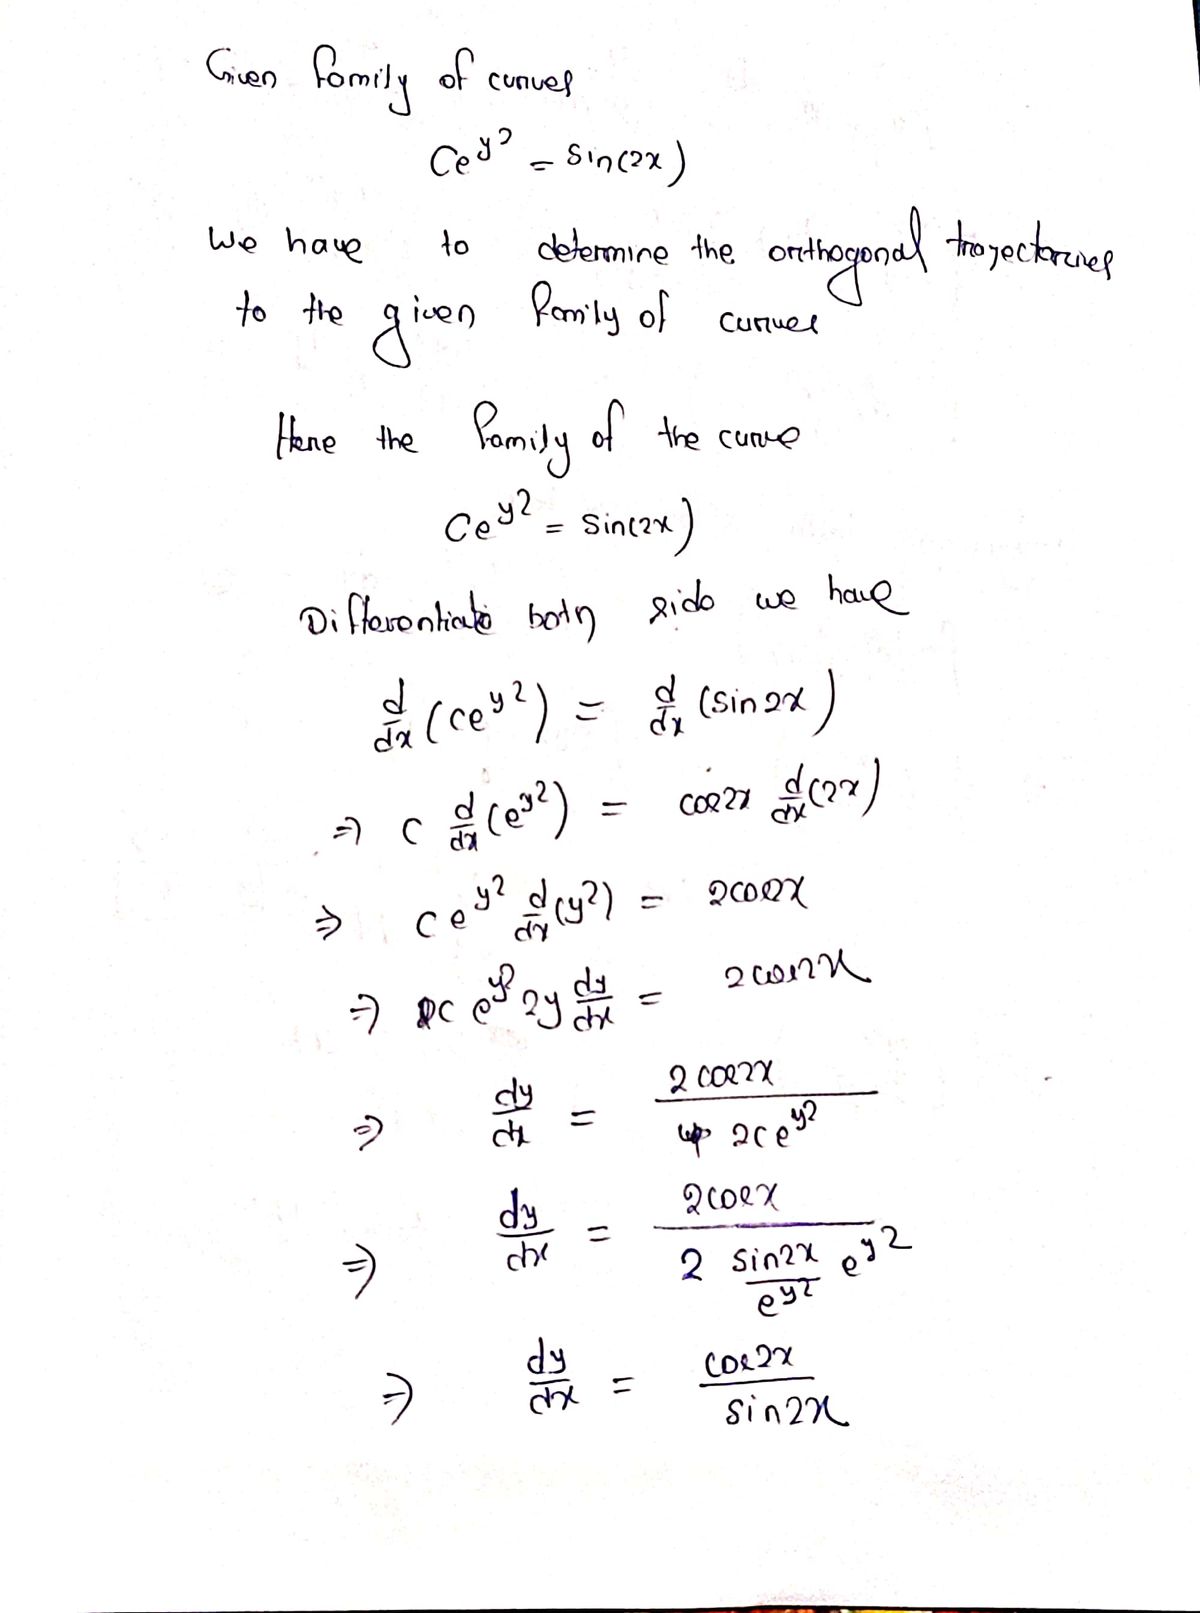 Given family of curves
Ce^{y^2} = Sin(2x)
We have to determine the orthogonal trajectories
to the given family of curves
Here the family of the curve
Ce^{y^2} = Sin(2x)
Differentiate both side we have
d/dx (ce^{y^2}) = d/dx (sin 2x)
⇒ C d/dx (e^{y^2}) = cos2x d/dx (2x)
⇒ C e^{y^2} d/dx (y^2) = 2cos2x
⇒ C e^{y^2} 2y dy/dx = 2cos2x
⇒ dy/dx = 2cos2x / 2c e^{y^2}
⇒ dy/dx = 2cosx / 2 (sin2x / e^{y^2}) e^{y^2}
⇒ dy/dx = cos2x / sin2x